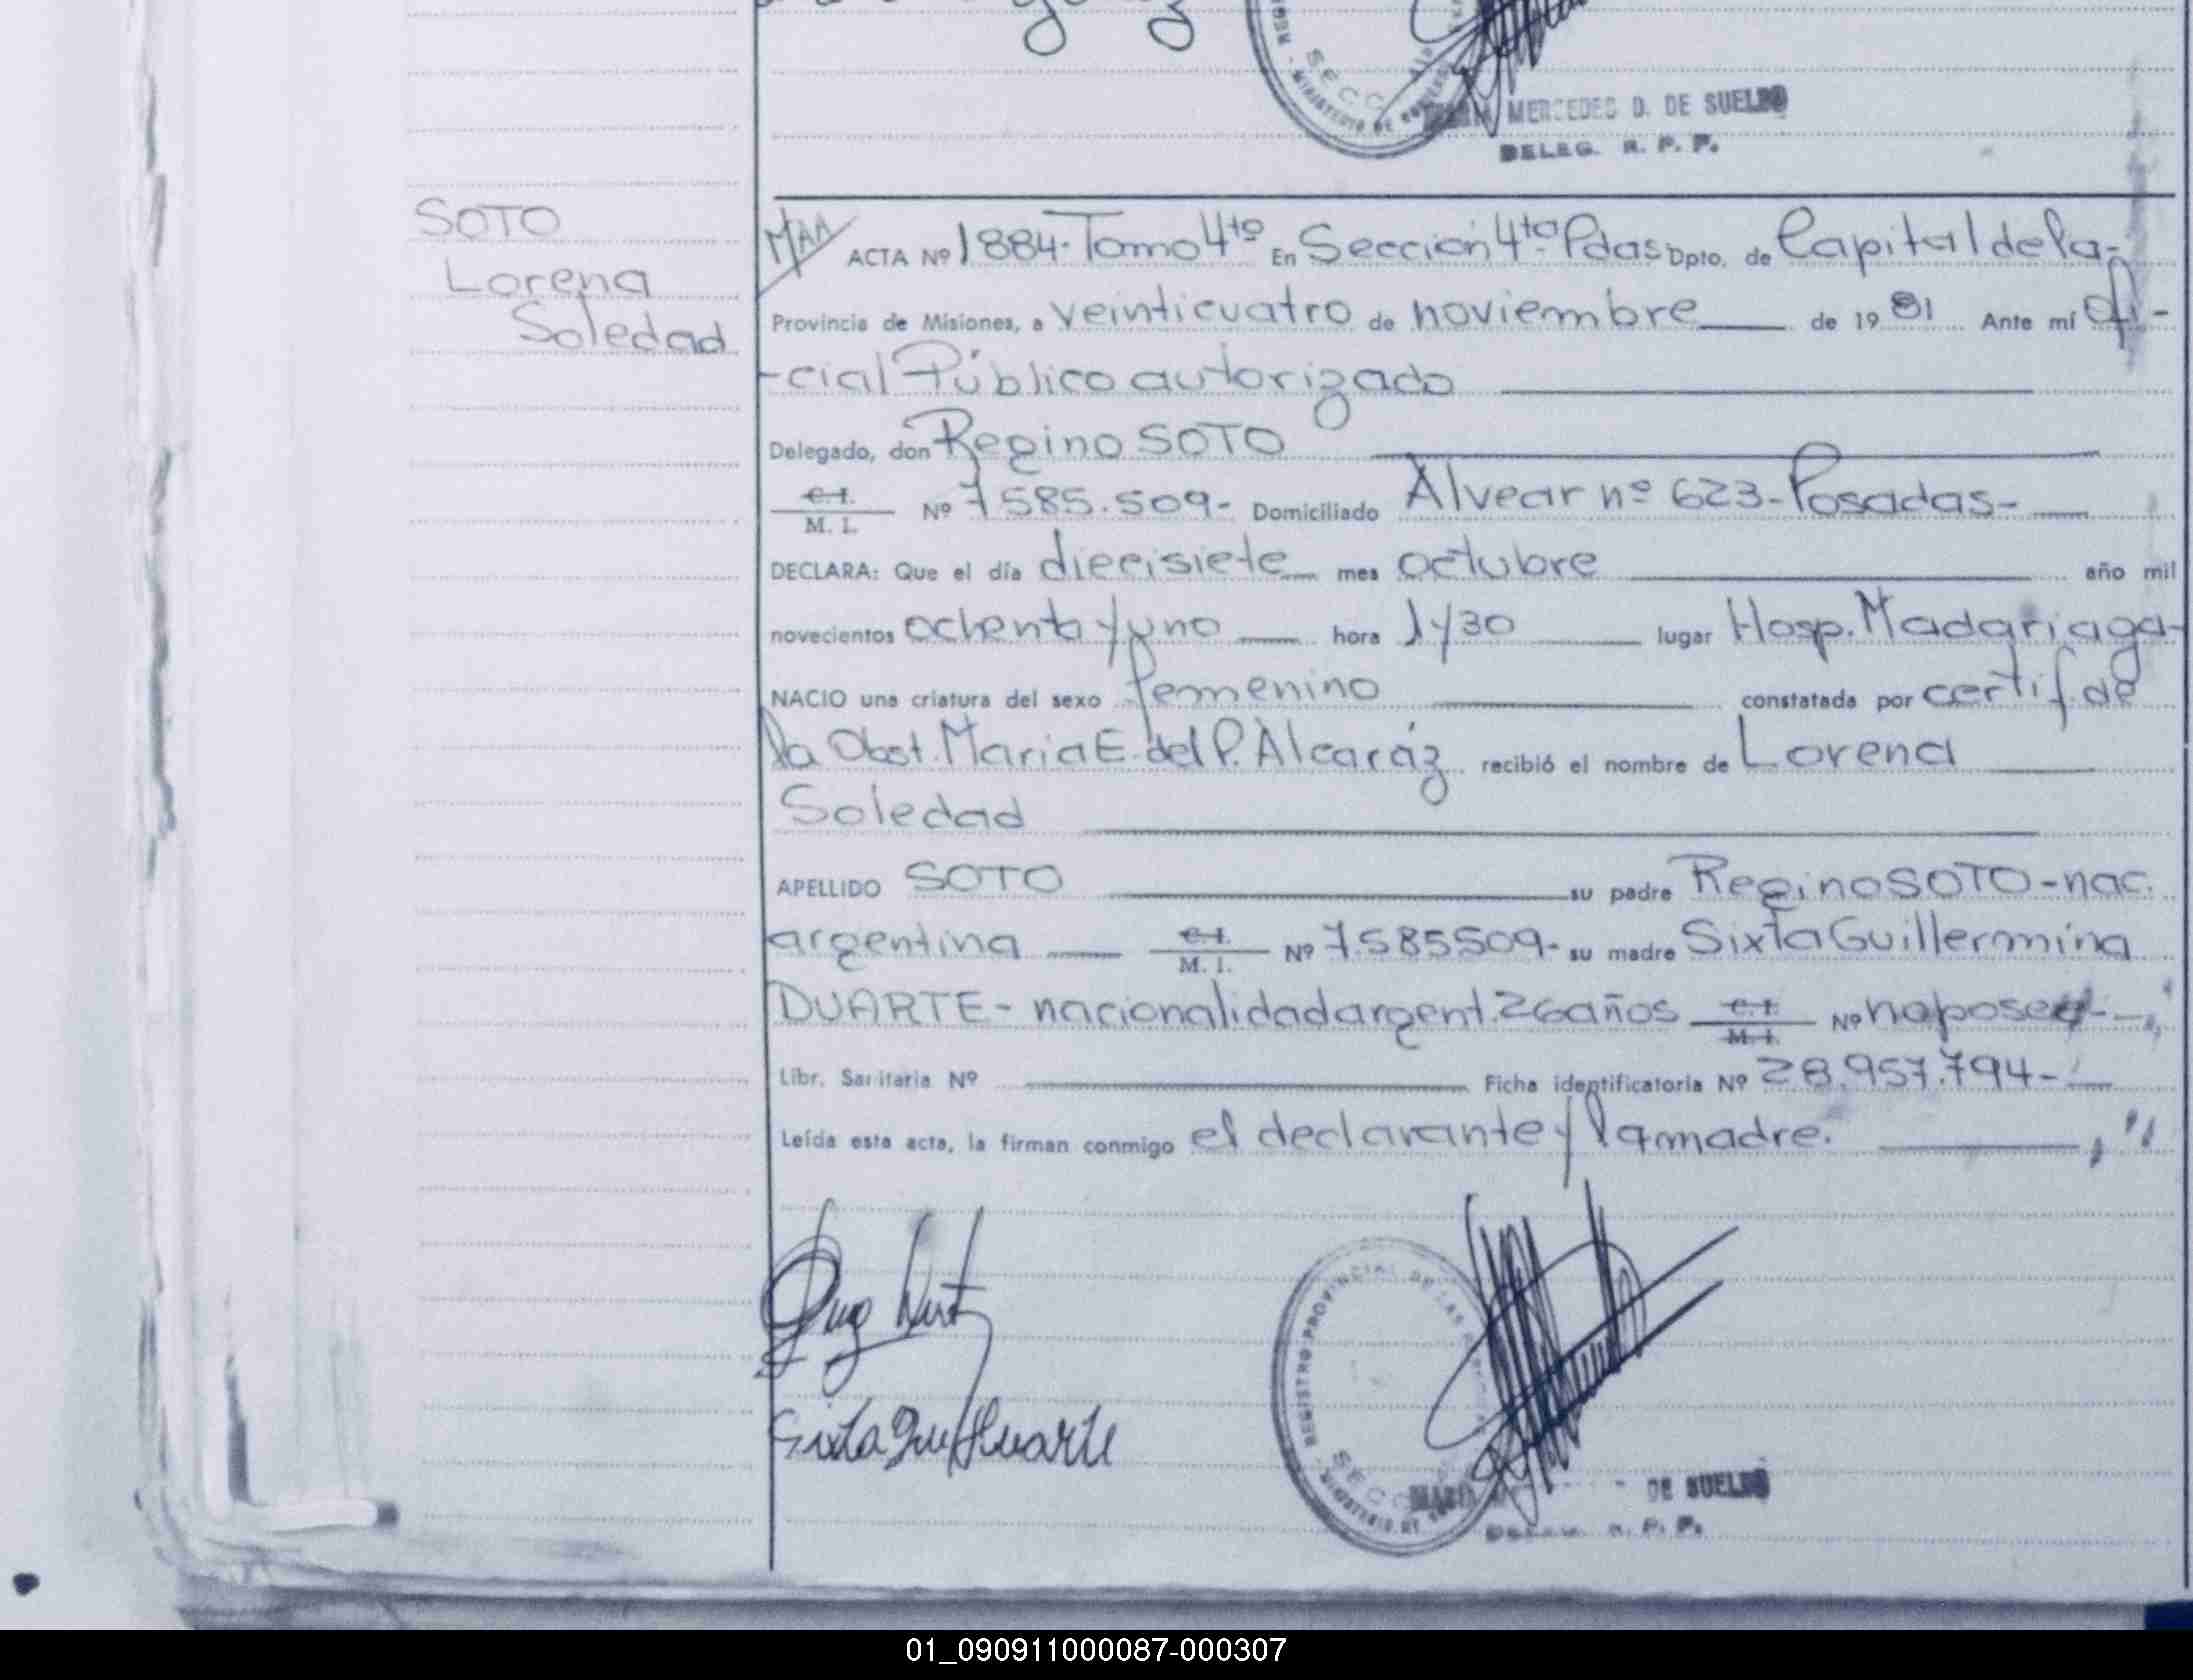 MERCEDES D. DE SUELDO
DELEG. R. P. P.
SOTO
Lorena
Soledad
ACTA Nº 1884- Tomo 4to En Sección 4ta Pdas Dpto. de Capital de la-
Provincia de Misiones, a veinticuatro de noviembre de 19 81 Ante mí ofi-
-cial Público autorizado
Delegado, don Regino SOTO
C.I.
M. I. Nº 7585.509- Domiciliado Alvear nº 623-Posadas-
DECLARA: Que el día diecisiete mes octubre año mil
novecientos ochenta y uno hora 1 y 30 lugar Hosp. Madariaga-
NACIO una criatura del sexo femenino constatada por certif. de
la Obst. Maria E. del P. Alcaráz recibió el nombre de Lorena
Soledad
APELLIDO SOTO su padre Regino SOTO-nac.
argentina C.I.
M. I. Nº 7.585509- su madre Sixta Guillermina
DUARTE- nacionalidad argent. 26 años C.I.
M. I. Nº no posee-
Libr. Sanitaria Nº Ficha identificatoria Nº 28.957.794-
Leída esta acta, la firman conmigo el declarante y la madre.
Sixta Gui Duarte
REGISTRO PROVINCIAL DE LAS
SECC
MINISTERIO DE
DE SUELDO
R. P. P.
01_090911000087-000307